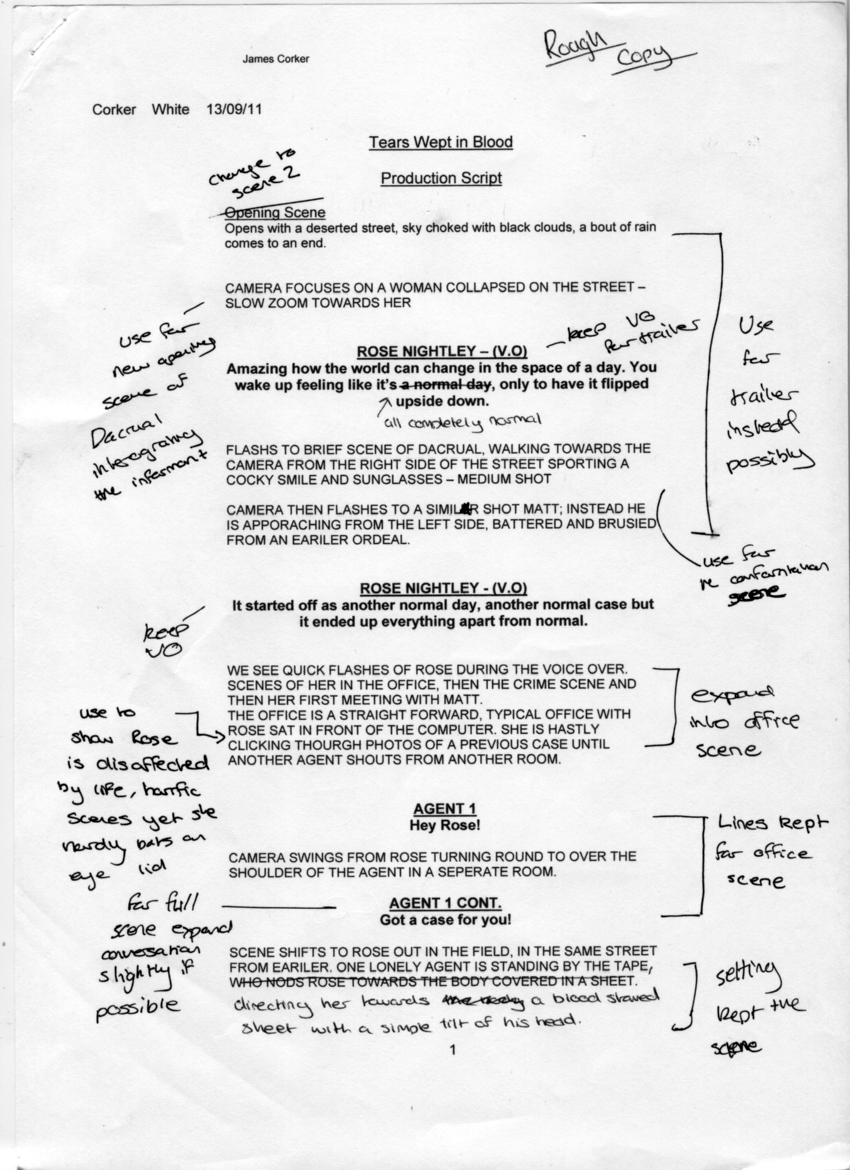 Rough
Copy
James Corker
Corker White 13/09/11
Tears Wept in Blood
Production Script
change to
scene 2
Opening Scene
Opens with a deserted street, sky choked with black clouds, a bout of rain
comes to an end.
CAMERA FOCUSES ON A WOMAN COLLAPSED ON THE STREET –
SLOW ZOOM TOWARDS HER
use for
new opening
scene of
Dacrual
interograting
the informant
keep VO
for trailer
Use
for
trailer
instead
possibly
ROSE NIGHTLEY – (V.O)
Amazing how the world can change in the space of a day. You
wake up feeling like it's a normal day, only to have it flipped
upside down.
all completely normal
FLASHS TO BRIEF SCENE OF DACRUAL, WALKING TOWARDS THE
CAMERA FROM THE RIGHT SIDE OF THE STREET SPORTING A
COCKY SMILE AND SUNGLASSES – MEDIUM SHOT
CAMERA THEN FLASHES TO A SIMILAR SHOT MATT; INSTEAD HE
IS APPORACHING FROM THE LEFT SIDE, BATTERED AND BRUSIED
FROM AN EARILER ORDEAL.
use for
scene
ROSE NIGHTLEY - (V.O)
It started off as another normal day, another normal case but
it ended up everything apart from normal.
keep
VO
WE SEE QUICK FLASHES OF ROSE DURING THE VOICE OVER.
SCENES OF HER IN THE OFFICE, THEN THE CRIME SCENE AND
THEN HER FIRST MEETING WITH MATT.
THE OFFICE IS A STRAIGHT FORWARD, TYPICAL OFFICE WITH
ROSE SAT IN FRONT OF THE COMPUTER. SHE IS HASTLY
CLICKING THOURGH PHOTOS OF A PREVIOUS CASE UNTIL
ANOTHER AGENT SHOUTS FROM ANOTHER ROOM.
expand
into office
scene
use to
show Rose
is disaffected
by life, horrific
scenes yet she
hardly bats an
eye lid
AGENT 1
Hey Rose!
CAMERA SWINGS FROM ROSE TURNING ROUND TO OVER THE
SHOULDER OF THE AGENT IN A SEPERATE ROOM.
Lines kept
for office
scene
AGENT 1 CONT.
Got a case for you!
for full
scene expand
conversation
slightly if
possible
SCENE SHIFTS TO ROSE OUT IN THE FIELD, IN THE SAME STREET
FROM EARILER. ONE LONELY AGENT IS STANDING BY THE TAPE,
WHO NODS ROSE TOWARDS THE BODY COVERED IN A SHEET.
directing her towards the body a blood stained
sheet with a simple tilt of his head.
setting
kept the
scene
1